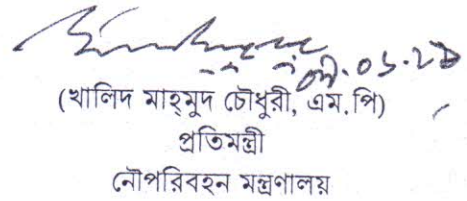 (খালিদ মাহ্‌মুদ চৌধুরী, এম.পি)
প্রতিমন্ত্রী
নৌপরিবহন মন্ত্রণালয়